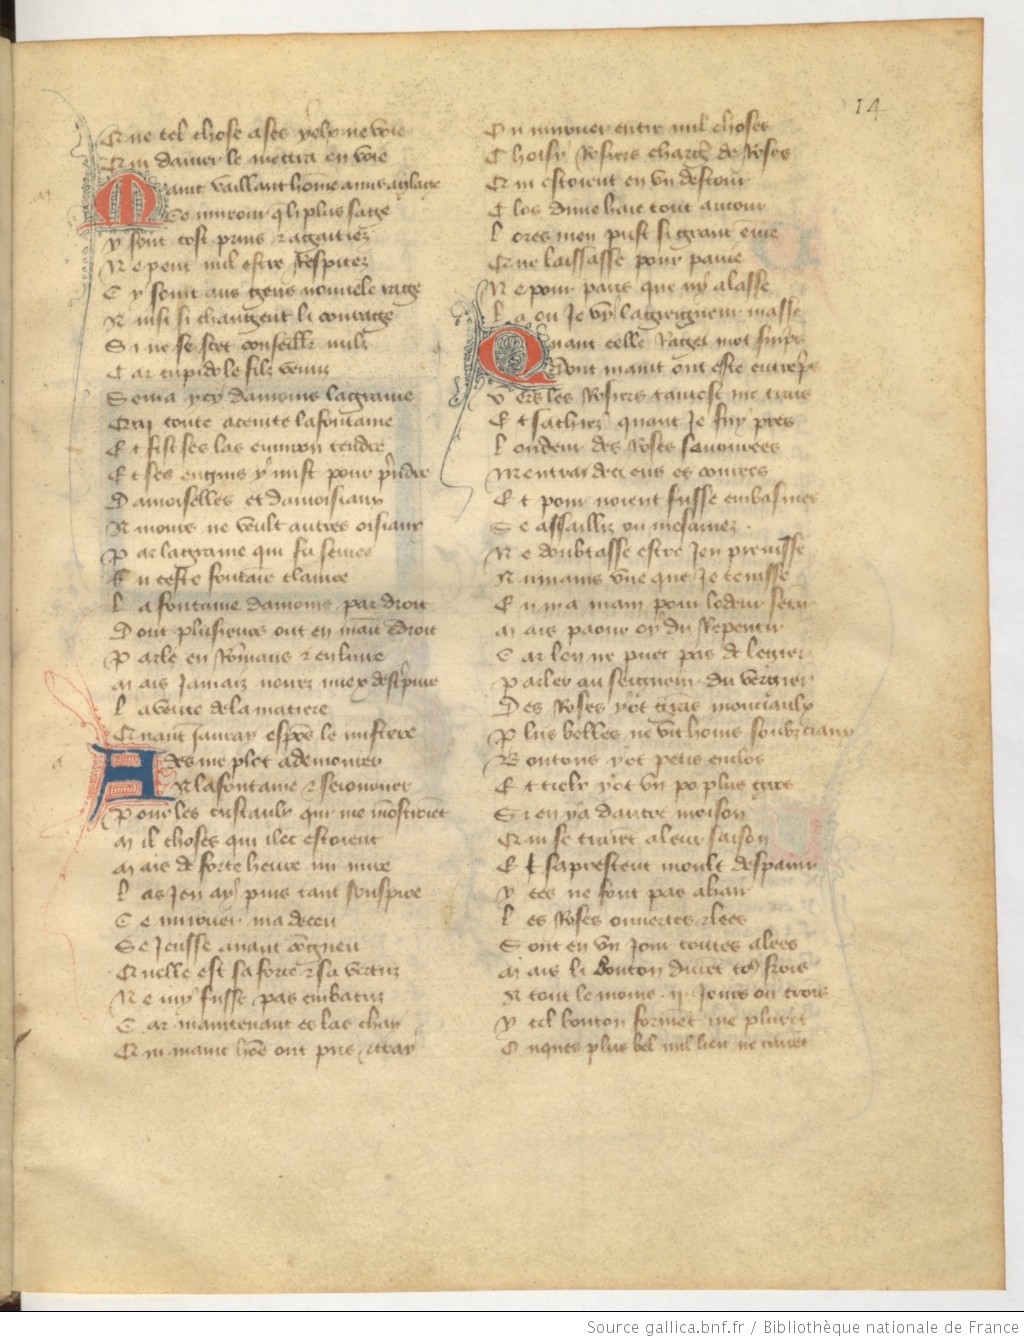 14
Que tel chose a ses yelx ne voie
Qui damer le mettra en voie
Maint vaillant home a mis a glaive
Ce mirour q li plus sage
Y sont tost prins ⁊ agaitiez
Ne peut nul estre respitez
C y sourt aus gens nouvele rage
Ainsi si changent li courage
Si ne se scet conseillr nulz
Car cupido le filz venus
Sema ycy damours la graine
Qui toute aceinte la fontaine
Et fist ses las environ tendre
Et ses engins y mist pour pndre
Damoiselles et damoisiaux
Amours ne veult autres oisiaux
Par la graine qui fu semee
En ceste fontaine clamee
La fontaine damours par droit
Dont plusieurs ont en maint endroit
Parle en romans ⁊ en livre
Mais jamaiz norrez miex descpvre
La verite de la matiere
Quant jauray espos le mistere
Ades me plot a demorer
A la fontaine ⁊ seiourner
Pour les cristaulx qui me monstroient
Mil choses qui ilec estoient
Mais de forte heure mi mire
Las jen ay puis tant souspire
Ce mirouer ma deceu
Se jeusse avant congneu
Quelle est sa force ⁊ sa vertuz
Ne my fusse pas embatuz
Car maintenant es las chay
Qui maint home ont pris ⁊ tray
Ou mirouer entre mil choses
Choisy rosiers charch de roses
Qui estoient en un destour
Clos dune haie tout autour
Lores men prist si grant envie
Que laissasse pour pavie
Ne pour paris que ny alasse
La ou je vy la greigneur masse
Quant celle rage mot surps
Dont maint ont este entreps
Vers les rosiers tantost me trais
Et sachiez quant je fuy pres
Londeur des roses savourees
Mentra dec ens es courees
Et pour noient fusse embasmes
Se assailliz ou mesamez
Ne doubtasse estre jen preinsse
Au mains une que je tenisse
En ma main pour lodeur sentir
Mais paour oy du repentir
Car len ne puet pas de legier
Parler au seigneur du vergier
Des roses yot grans monciaulx
Plus belles ne vit homs soubz ciaux
Boutons yot petis enclos
Et tielx yot un po plus gros
Si en ya dautre moison
Qui se traient a leur saison
Et saprestent moult despanir
Y ces ne font pas a hair
Les roses ouvertes ⁊ lees
Sont en un jour toutes alees
Mais li bouton durent tos frois
A tout le moins .ij. jours ou trois
Y cil bouton forment me pleurent
Onques plus bel nul lieu ne crurent
Source gallica.bnf.fr / Bibliothèque nationale de France